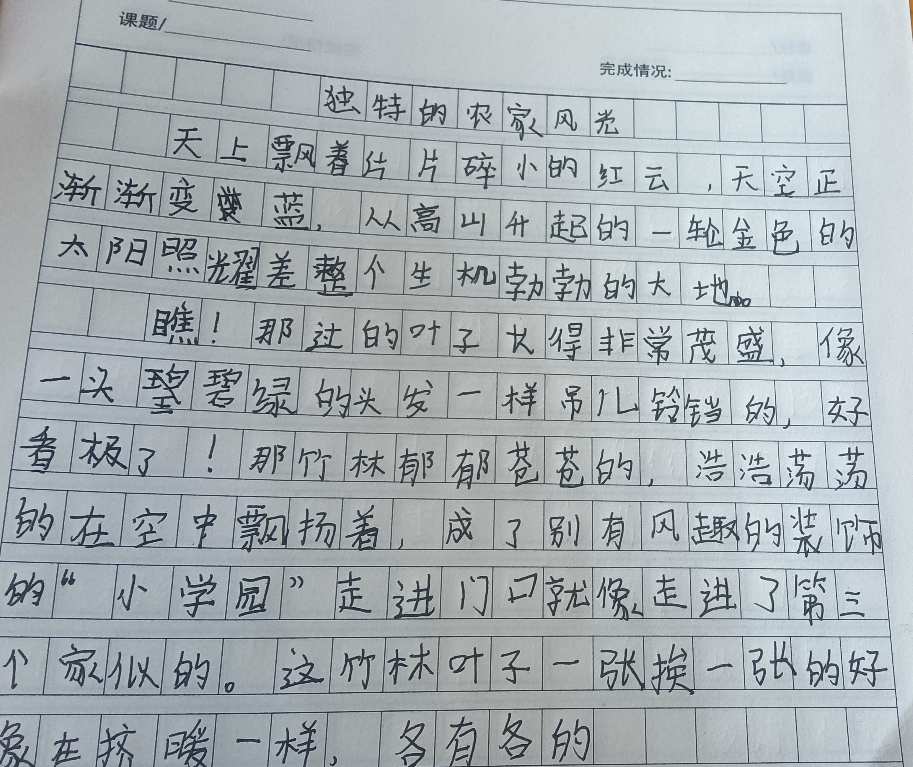 课题/
完成情况:
独特的农家风光
天上飘着片片碎小的红云,天空正
渐渐变蓝,从高山升起的一轮金色的
太阳照耀差整个生机勃勃的大地。
瞧!那过的叶子长得非常茂盛,像
一头碧绿的头发一样吊儿铃铛的,好
看极了!那竹林郁郁苍苍的,浩浩荡荡
的在空中飘扬着,成了别有风趣的装饰
的“小学园”走进门口就像走进了第三
个家似的。这竹林叶子一张挨一张的好
象在挤暖一样,各有各的